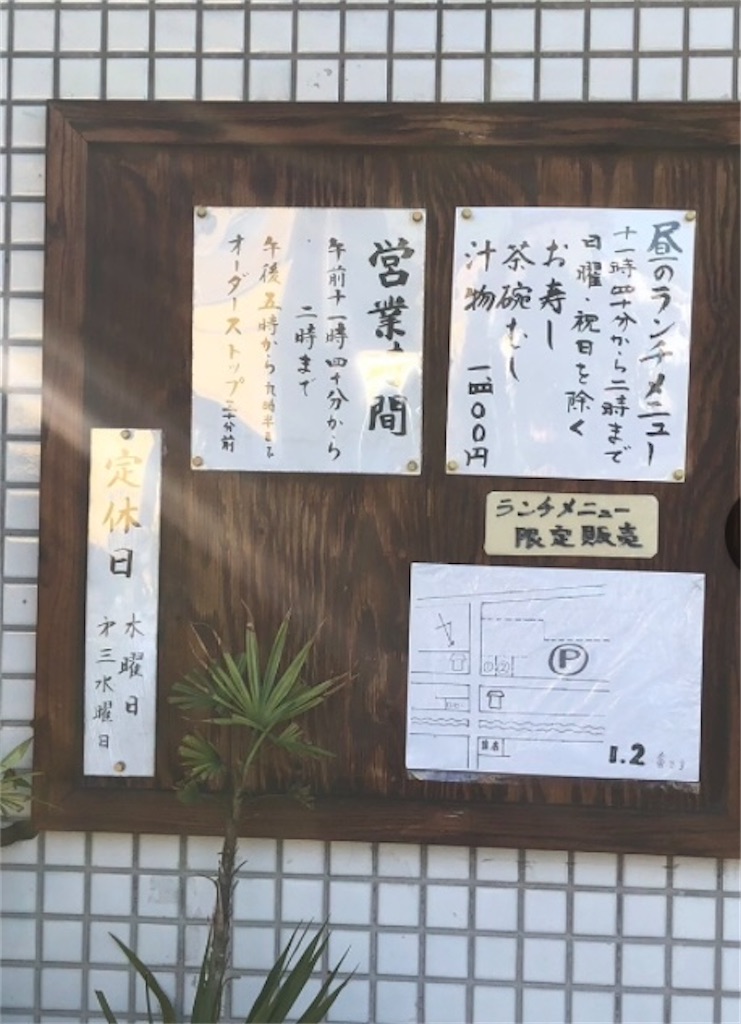 昼のランチメニュー
十一時四十分から二時まで
日曜・祝日を除く
お寿し
茶碗むし
汁物 一四〇〇円
営業時間
午前十一時四十分から
二時まで
午後五時から九時半まで
オーダーストップ三十分前
ランチメニュー
限定販売
定休日
水曜日
第三水曜日
P
① ②
1.2